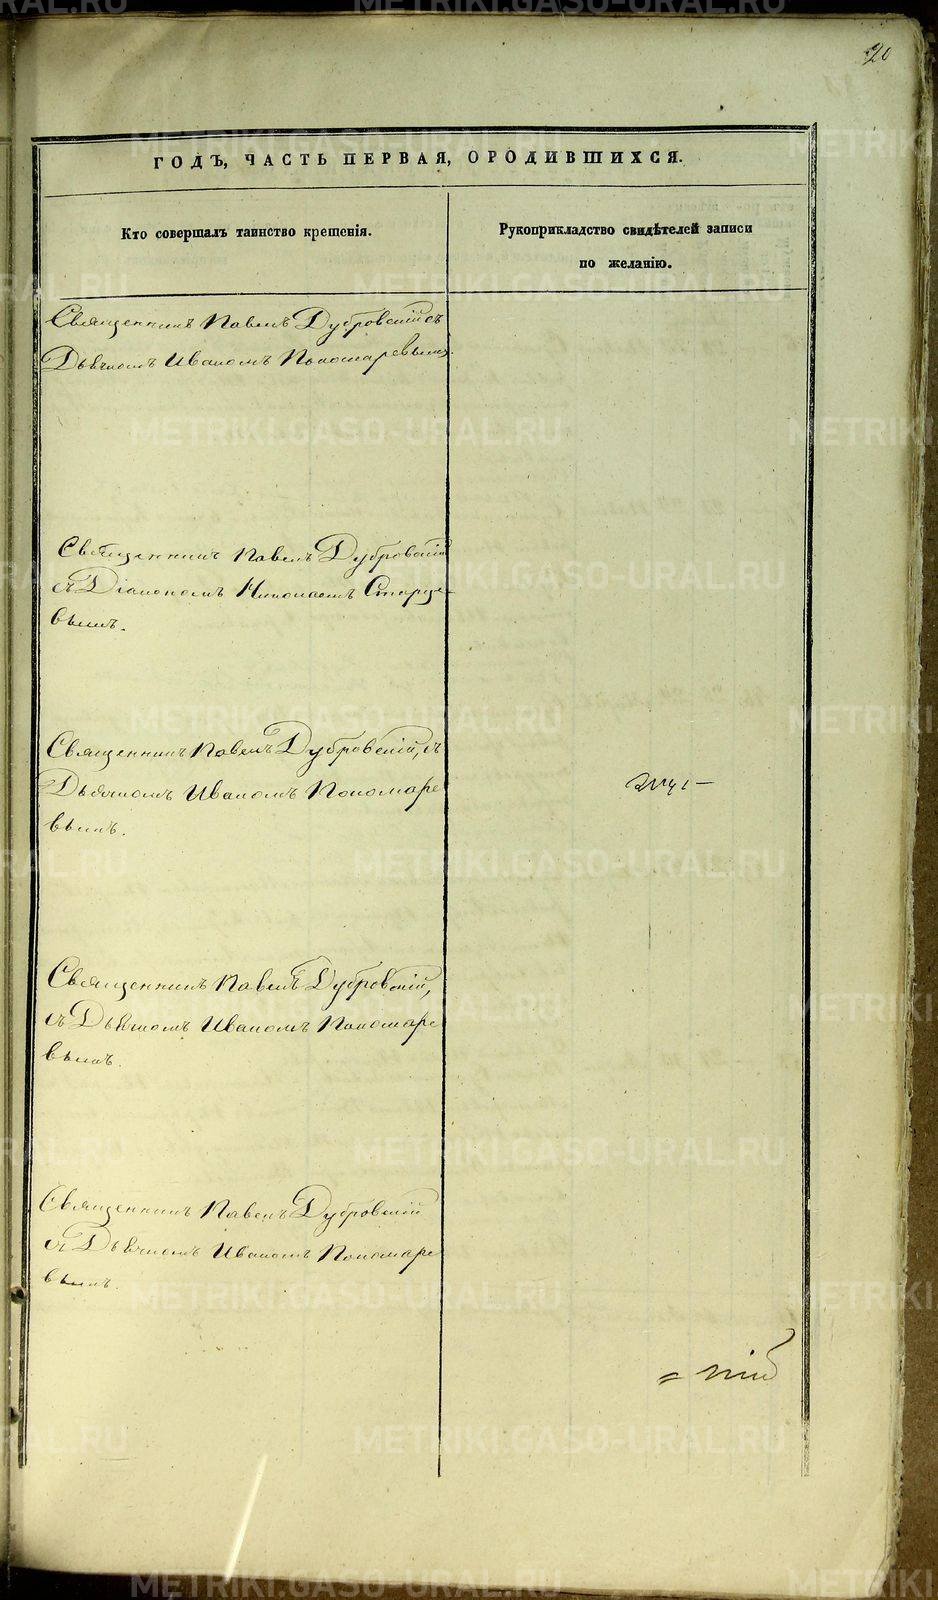 20
ГОДЪ, ЧАСТЬ ПЕРВАЯ, О РОДИВШИХСЯ.
Кто совершалъ таинство крещенія.
Рукоприкладство свидѣтелей записи
по желанію.
Священникъ Павелъ Дубровскій съ
Дьячкомъ Иваномъ Пономаревымъ.
Священникъ Павелъ Дубровскій
съ Діакономъ Николаемъ Старце-
вымъ.
Священникъ Павелъ Дубровскій, съ
Дьячкомъ Иваномъ Пономаре
вымъ.
Священникъ Павелъ Дубровскій,
съ Дьячкомъ Иваномъ Пономаре
вымъ.
Священникъ Павелъ Дубровскій
съ Дьячкомъ Иваномъ Пономаре
вымъ.
METRIKI.GASO-URAL.RU